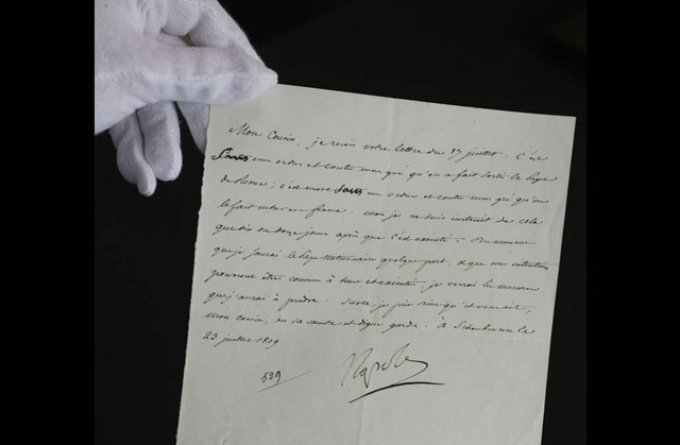 Mon Cousin, je reçois votre lettre du 17 juillet. C'est
sans mon ordre et contre mon gré qu'on a fait sortir le Pape
de Rome; c'est encore sans mon ordre et contre mon gré qu'on
le fait entrer en france. mais je ne suis instruit de cela
que dix ou douze jours après que c'est exécuté. Du moment
que je saurai le Pape stationnaire quelque part, & que mes intentions
pourront être connues à tems et exécutées, je verrai les mesures
que j'aurai à prendre. Sur ce, je prie Dieu qu'il vous ait,
Mon cousin, en sa sainte et digne garde. à Schonbrunn le
23 juillet 1809
539
Napole